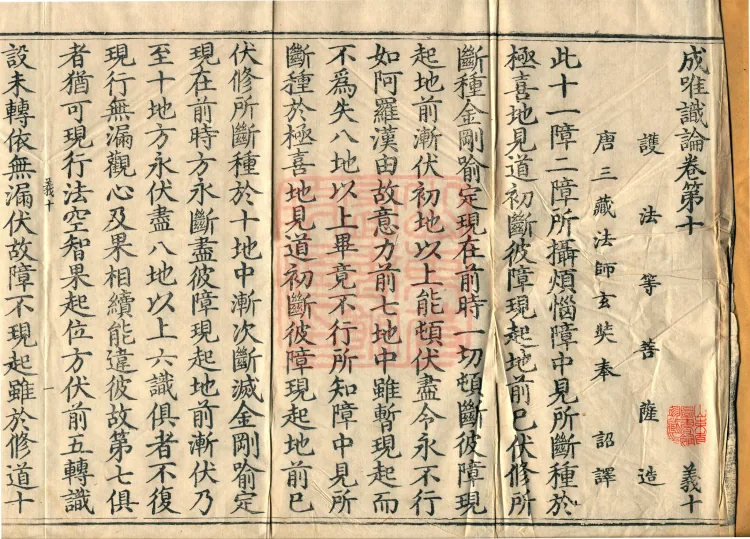 成唯識論卷第十　義十
護法等菩薩造
唐三藏法師玄奘奉　詔譯
此十一障二障所攝煩惱障中見所斷種於
極喜地見道初斷彼障現起地前已伏修所
斷種金剛喻定現在前時一切頓斷彼障現
起地前漸伏初地以上能頓伏盡令永不行
如阿羅漢由故意力前七地中雖暫現起而
不爲失八地以上畢竟不行所知障中見所
斷種於極喜地見道初斷彼障現起地前已
伏修所斷種於十地中漸次斷滅金剛喻定
現在前時方永斷盡彼障現起地前漸伏乃
至十地方永伏盡八地以上六識俱者不復
現行無漏觀心及果相續能違彼故第七俱
者猶可現行法空智果起位方伏前五轉識
義十　一
設未轉依無漏伏故障不現起雖於修道十